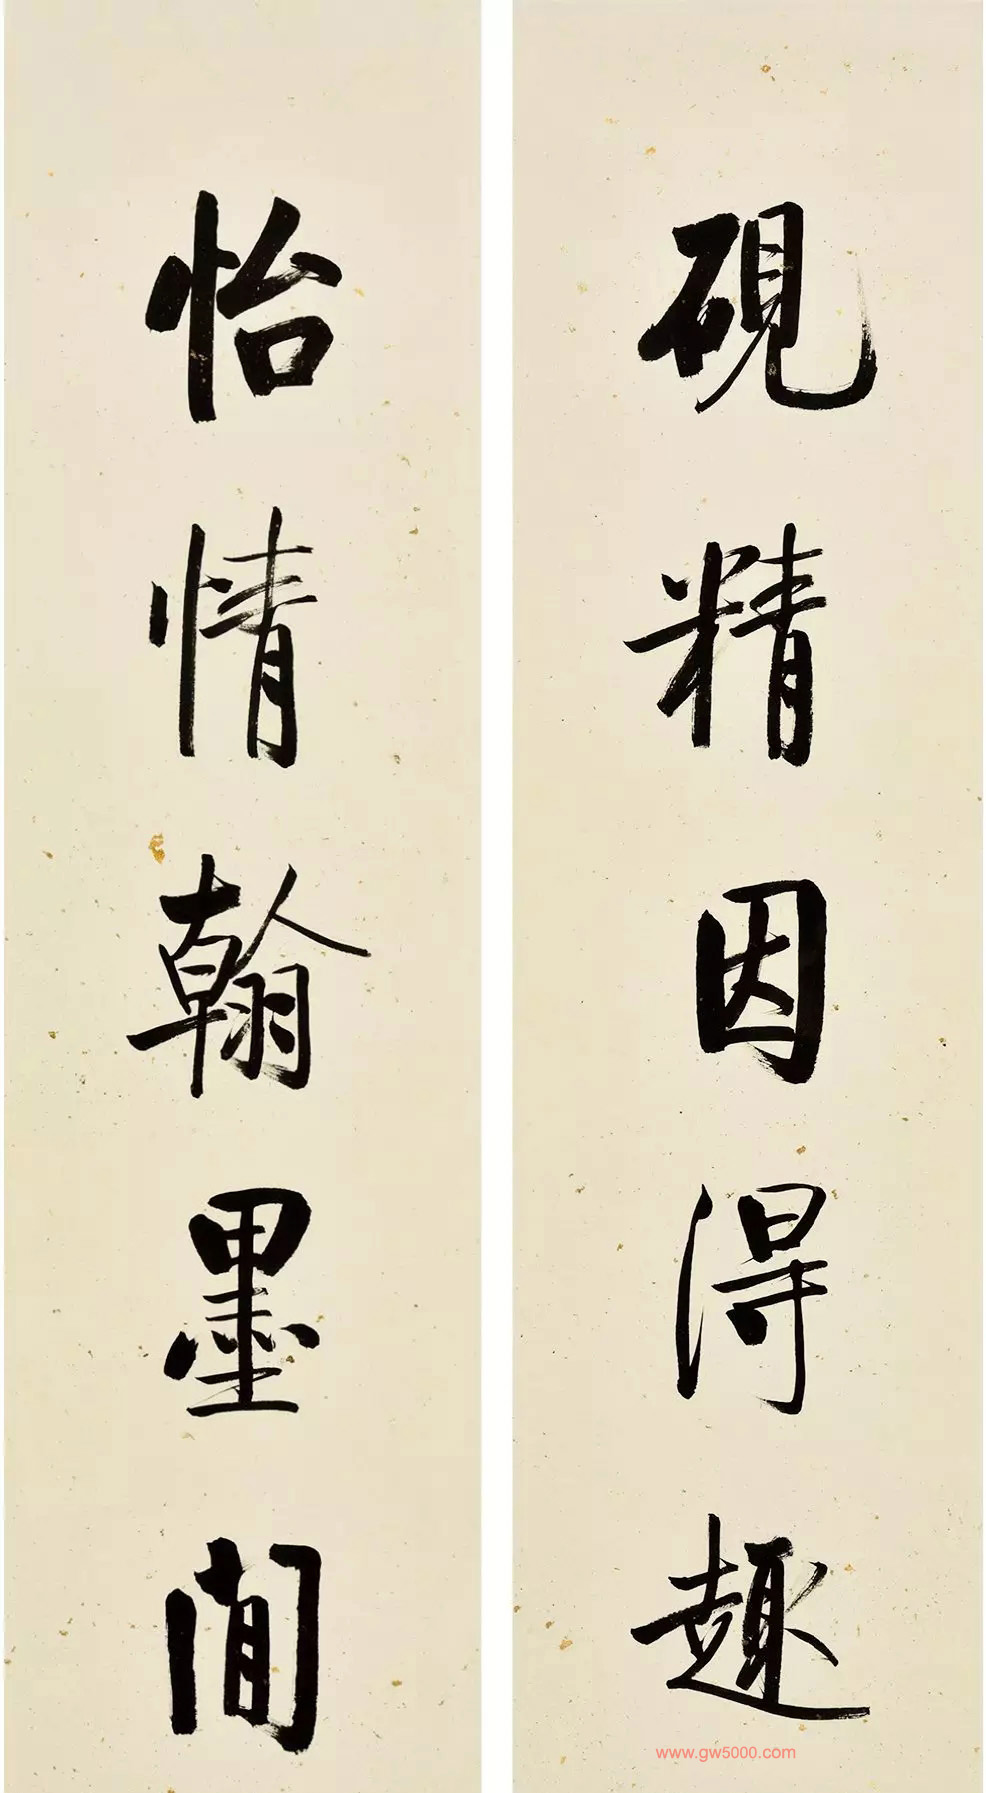 硯精因得趣
怡情翰墨間
www.gw5000.com